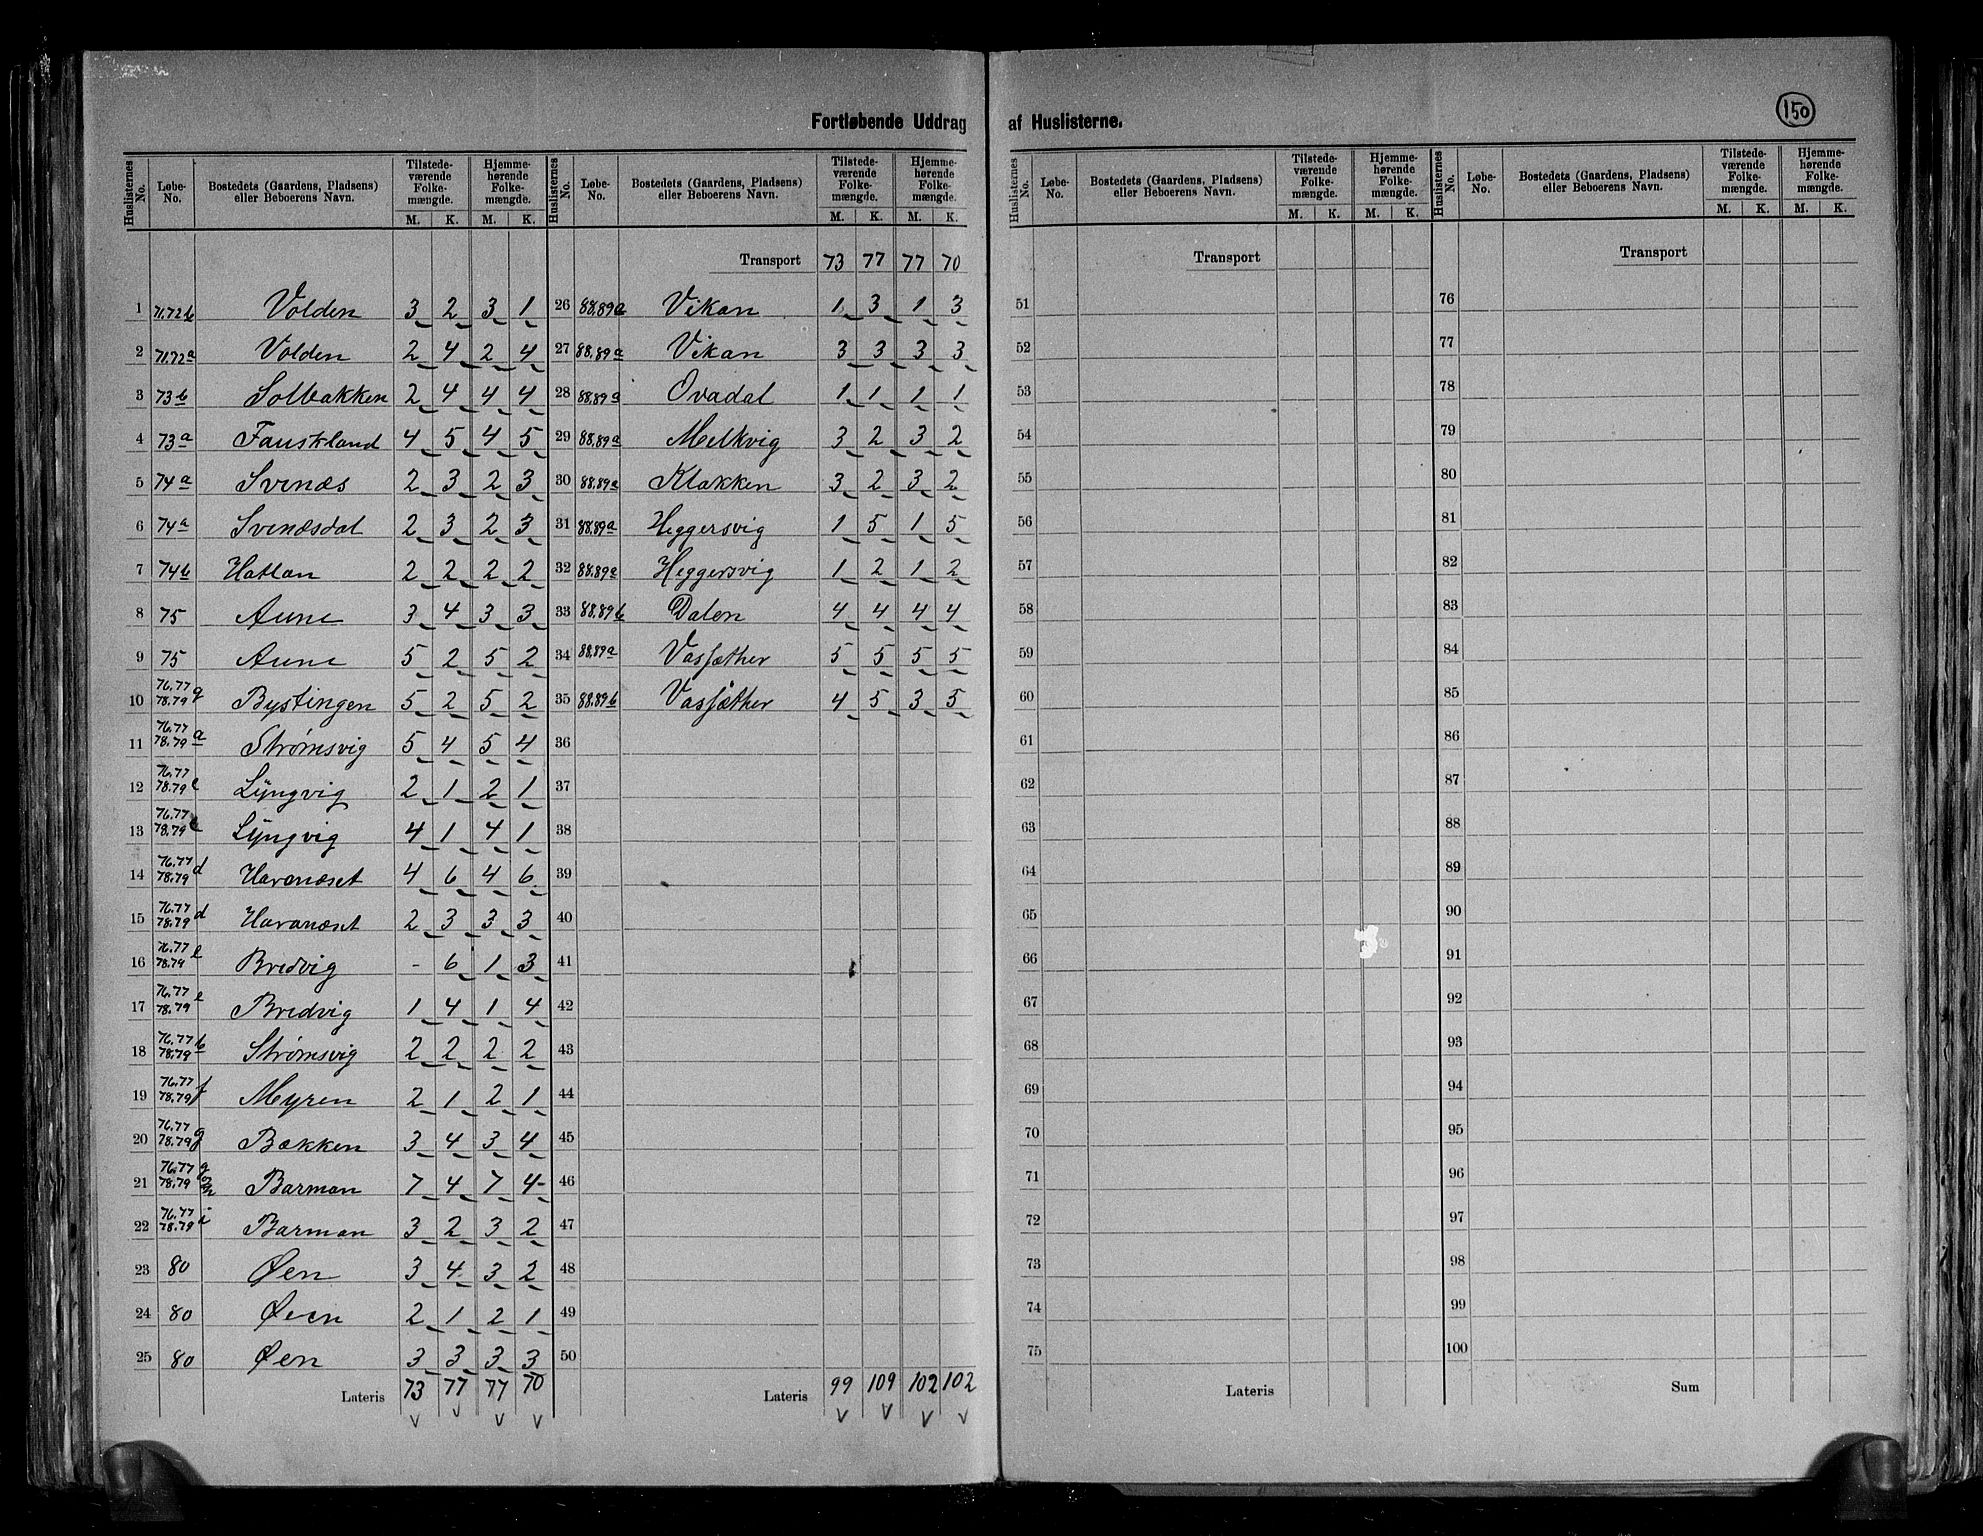 150
Fortløbende Uddrag af Huslisterne.
Huslisternes No. Løbe-No. Bostedets (Gaardens, Pladsens) eller Beboerens Navn. Tilstedeværende Folkemængde. M. K. Hjemmehørende Folkemængde. M. K.
1 71.72b Volden 3 2 3 1
2 71.72a Volden 2 4 2 4
3 73b Solbakken 2 4 4 4
4 73a Fauskland 4 5 4 5
5 74a Svenæs 2 3 2 3
6 74a Svenæsdal 2 3 2 3
7 74b Hattan 2 2 2 2
8 75 Aune 3 4 3 3
9 75 Aune 5 2 5 2
10 76.77 78.79 g Bystingen 5 2 5 2
11 76.77 78.79 a Strømsvig 5 4 5 4
12 76.77 78.79 c Lyngvig 2 1 2 1
13 76.77 78.79 c Lyngvig 4 1 4 1
14 76.77 78.79 d Havanæset 4 6 4 6
15 76.77 78.79 d Havanæset 2 3 3 3
16 76.77 78.79 e Bredvig - 6 1 3
17 76.77 78.79 e Bredvig 1 4 1 4
18 76.77 78.79 b Strømsvig 2 2 2 2
19 76.77 78.79 f Myren 2 1 2 1
20 76.77 78.79 g Bækken 3 4 3 4
21 76.77 78.79 Barman 7 4 7 4
22 76.77 78.79 i Barman 3 2 3 2
23 80 Øen 3 4 3 2
24 80 Øen 2 1 2 1
25 80 Øen 3 3 3 3
Lateris 73 77 77 70
Huslisternes No. Løbe-No. Bostedets (Gaardens, Pladsens) eller Beboerens Navn. Tilstedeværende Folkemængde. M. K. Hjemmehørende Folkemængde. M. K.
Transport 73 77 77 70
26 88.89a Vikan 1 3 1 3
27 88.89a Vikan 3 3 3 3
28 88.89a Ovadal 1 1 1 1
29 88.89a Melkvig 3 2 3 2
30 88.89a Klakken 3 2 3 2
31 88.89a Heggersvig 1 5 1 5
32 88.89a Heggersvig 1 2 1 2
33 88.89b Dalen 4 4 4 4
34 88.89a Vassæther 5 5 5 5
35 88.89b Vassæther 4 5 3 5
36
37
38
39
40
41
42
43
44
45
46
47
48
49
50
Lateris 99 109 102 102
Huslisternes No. Løbe-No. Bostedets (Gaardens, Pladsens) eller Beboerens Navn. Tilstedeværende Folkemængde. M. K. Hjemmehørende Folkemængde. M. K.
Transport
51
52
53
54
55
56
57
58
59
60
61
62
63
64
65
66
67
68
69
70
71
72
73
74
75
Lateris
Huslisternes No. Løbe-No. Bostedets (Gaardens, Pladsens) eller Beboerens Navn. Tilstedeværende Folkemængde. M. K. Hjemmehørende Folkemængde. M. K.
Transport
76
77
78
79
80
81
82
83
84
85
86
87
88
89
90
91
92
93
94
95
96
97
98
99
100
Sum